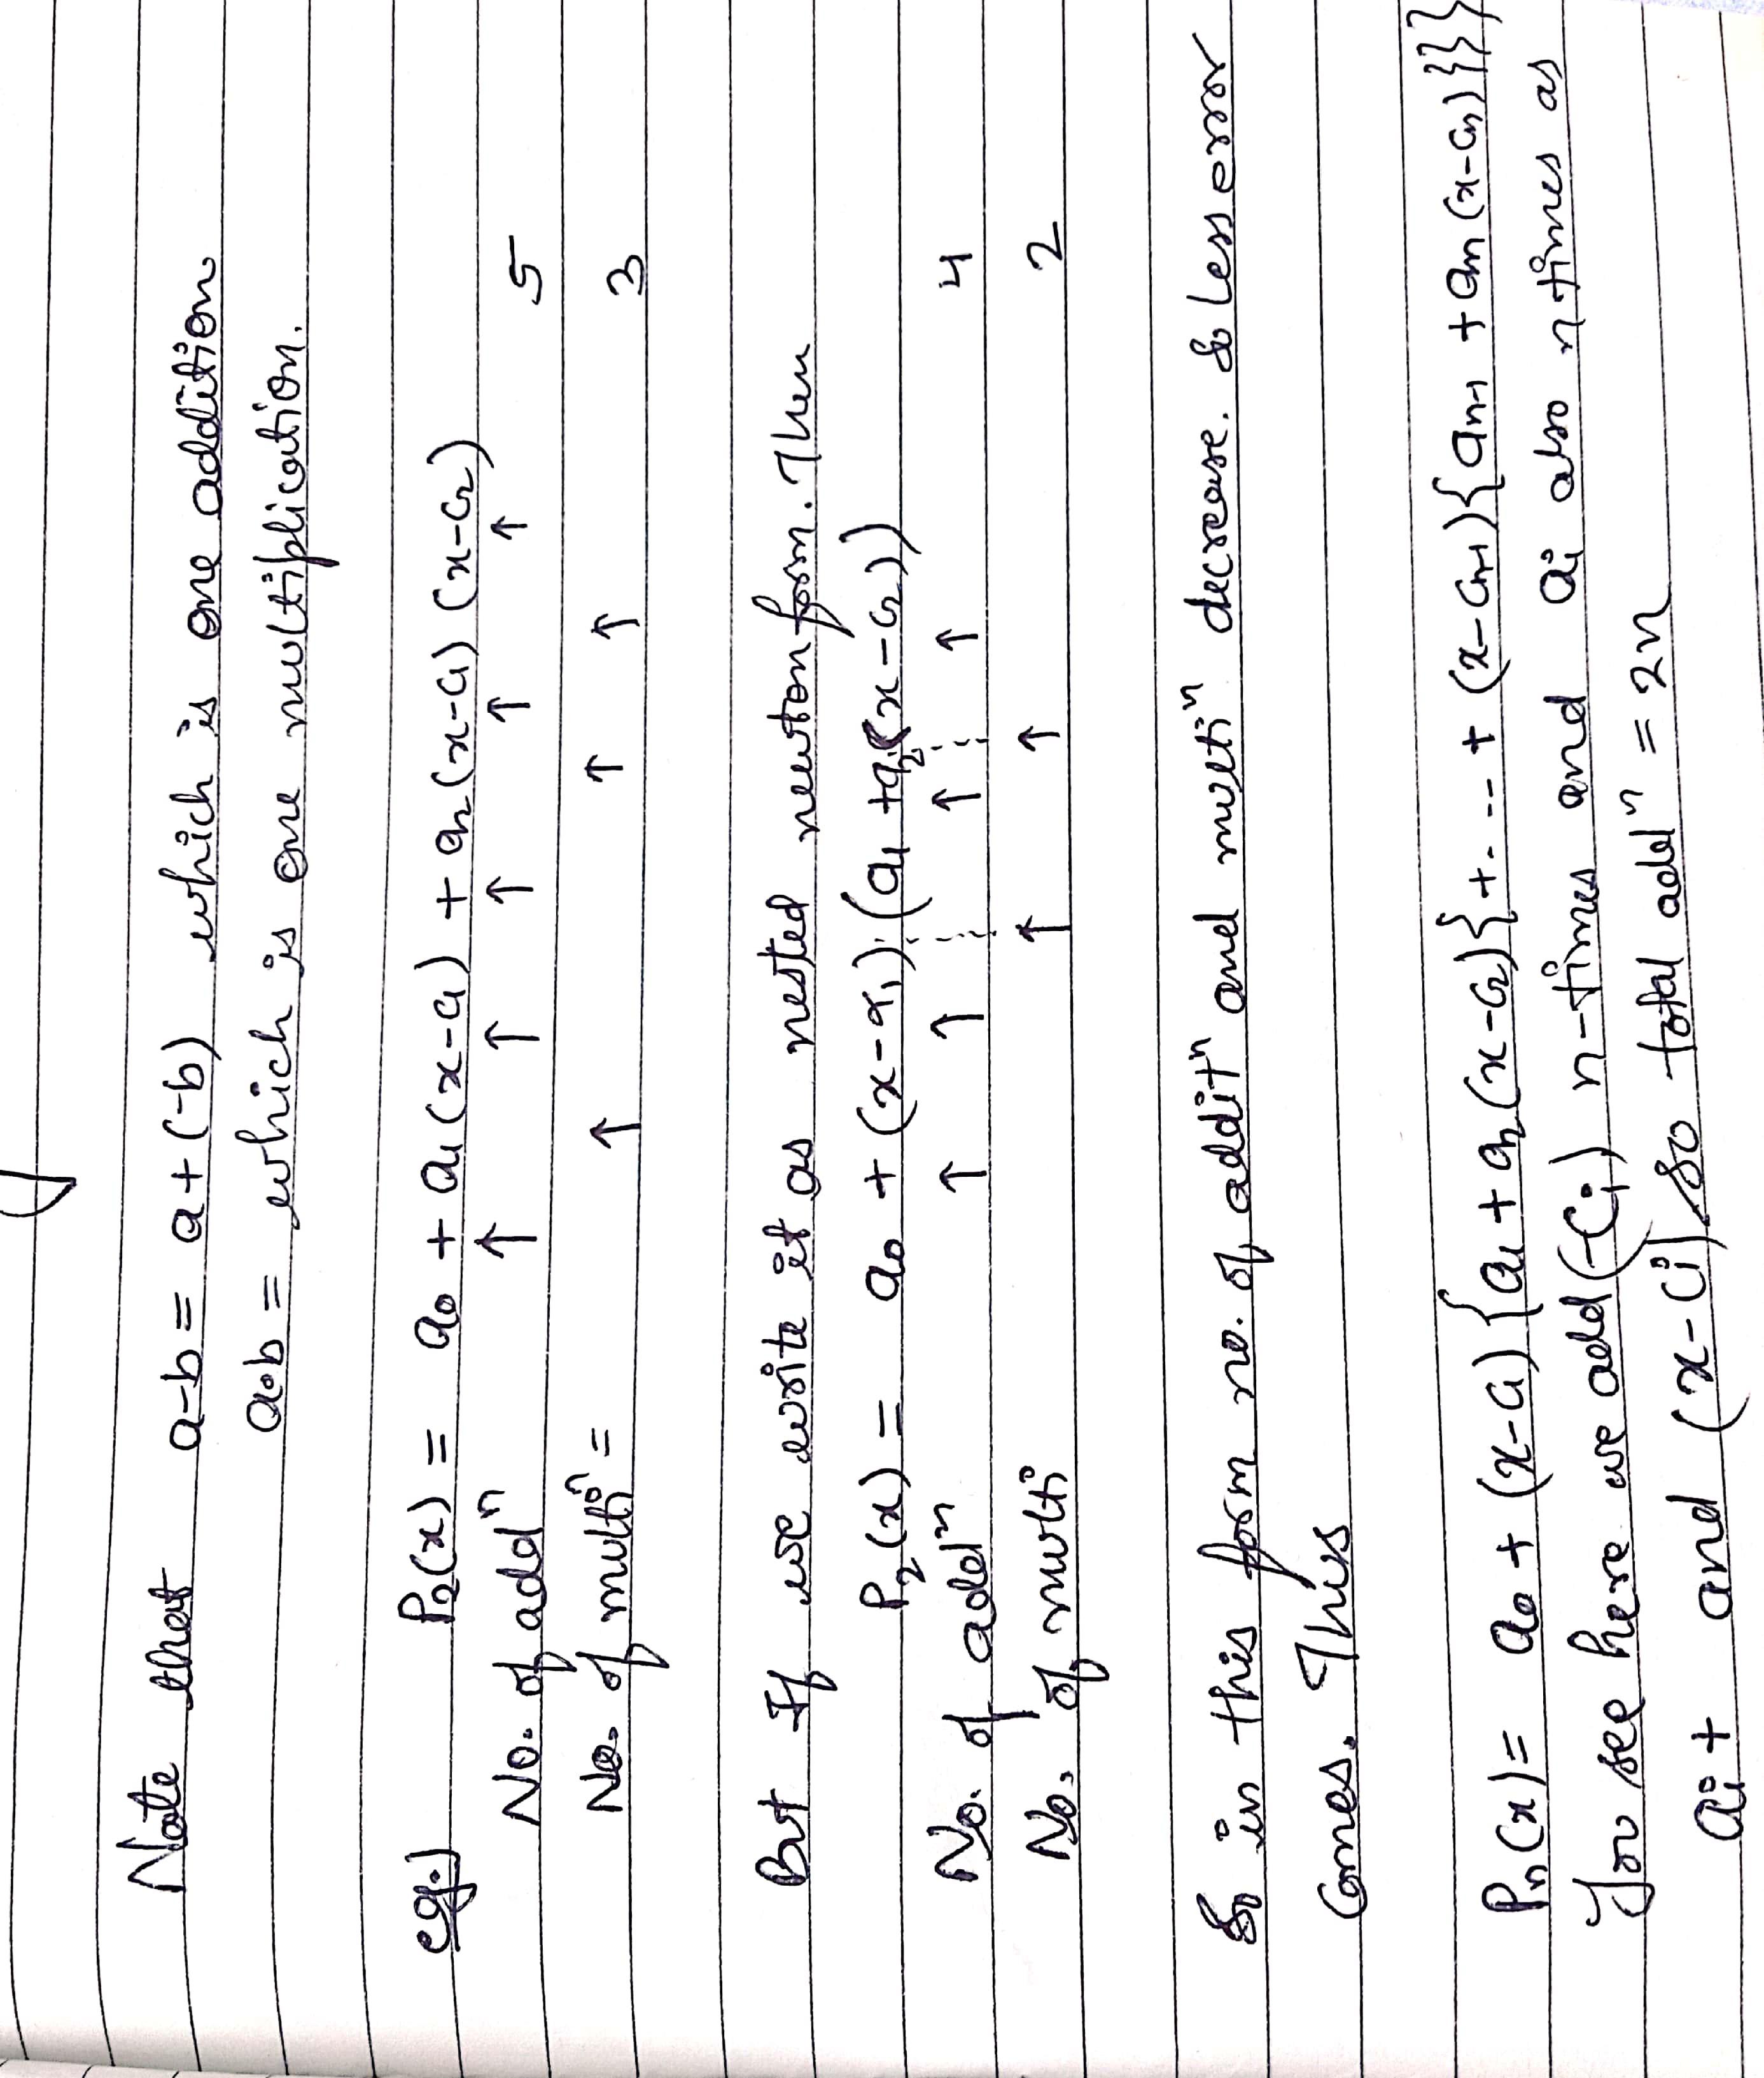 Note that a-b = a+(-b) which is one addition
a∘b = which is one multiplication.
eg.) P₂(x) = a₀ + a₁(x-c₁) + a₂(x-c₁)(x-c₂)
No. of addⁿ ↑ ↑ ↑ ↑ ↑ 5
No. of multiⁿ = ↑ ↑ ↑ 3
But If we write it as nested newton form. Then
P₂(x) = a₀ + (x-c₁)(a₁ + a₂(x-c₂))
No. of addⁿ ↑ ↑ ↑ ↑ 4
No. of multi ↑ ↑ 2
So in this form no. of additⁿ and multiⁿ decrease. So Less error
Comes. Thus
Pₙ(x) = a₀ + (x-c₁){a₁ + a₂(x-c₂)} + ... + (x-cₙ₋₁){aₙ₋₁ + aₙ(x-cₙ)}}}
You see here we add (-cᵢ) n-times and aᵢ also n times as
aᵢ + and (x-cᵢ) so total addⁿ = 2n